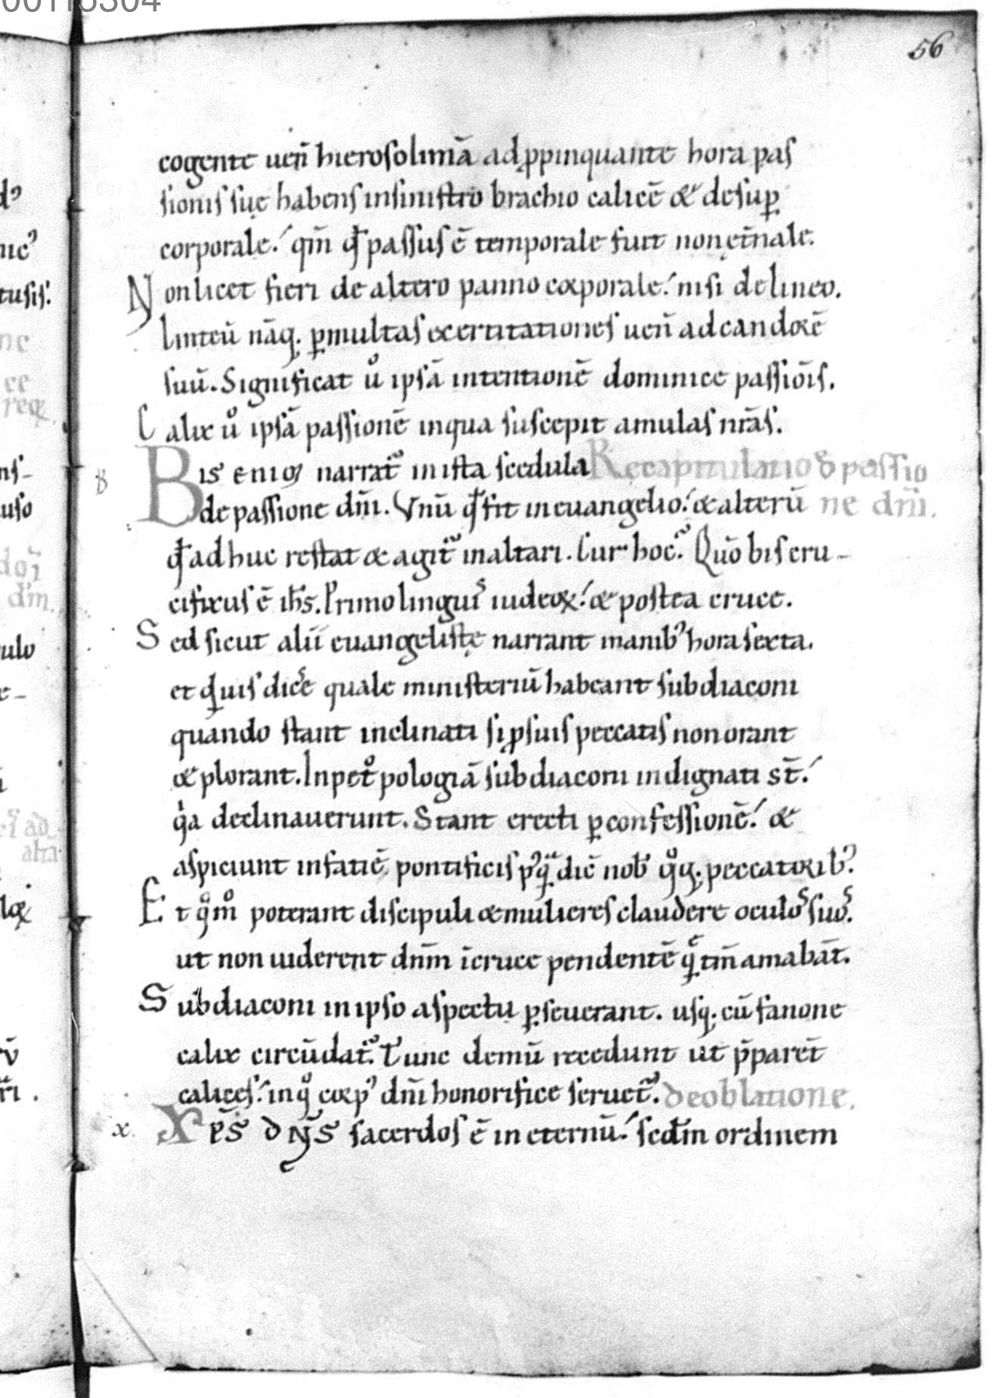 56
cogente ueñ hierosolimā adp̱ṗinquante hora pas
sionis suę habens insinistro brachio calicē & desup̱
corporale. qm̄ qđ passus ē temporale fuit non et̄nale.
Non licet fieri de altero panno corporale. nisi de lineo.
linteū nāq; p̱multas exercitationes ueñ ad candorē
suū. Significat ů ipsā intentionē dominice passiōis.
Calix ů ipsā passionē in qua suscepit amulas nr̄as.
Bis enim narrat᷑ in ista scedula Recapitulatio đ passio
de passione dn̄i. Vnū qđ fit in euangelio. & alterū ne dn̄i.
qđ ad huc restat & agit᷑ in altari. Cur hoc. Quō bis cru-
cifixus ē ih̄s. Primo linguis iudeoꝝ. & postea cruce.
Sed sicut alii euangelistę narrant manibꝰ hora sexta.
et quis dic̄e quale ministeriū habeant subdiaconi
quando stant inclinati si ꝓ suis peccatis non orant
& plorant. In pet᷑ pologiā subdiaconi indignati st̄.
qa declinauerunt. Stant erecti p̱ confessionē. &
aspiciunt in faciē pontificis
Et qom̊ poterant discipuli & mulieres claudere oculos suos.
ut non uiderent dn̄m īcruce pendentē q̄ tm̄ amabāt.
Subdiaconi in ipso aspectu p̱seuerant. usq; cū fanone
calix circūdat᷑. Tunc demū recedunt ut p̄paret̄
calices. in qͦ corpꝰ dn̄i honorifice seruet᷑. De oblatione.
x. XPS DN̄S sacerdos ē in eternū. secd̄m ordinem